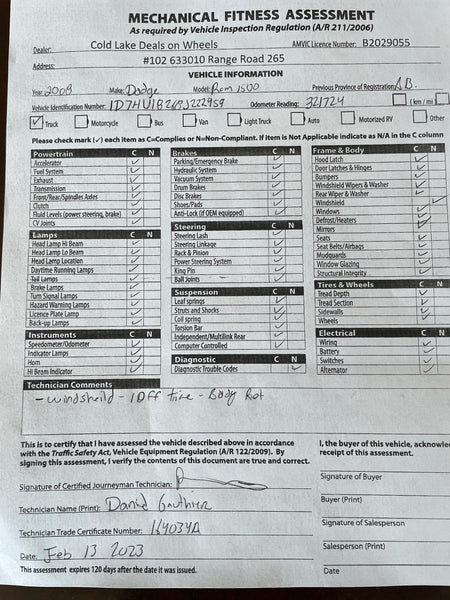 MECHANICAL FITNESS ASSESSMENT
As required by Vehicle Inspection Regulation (A/R 211/2006)
Dealer: Cold Lake Deals on Wheels AMVIC Licence Number: B2029055
Address: #102 633010 Range Road 265
VEHICLE INFORMATION
Year 2008 Make: Dodge Model: Ram 1500 Previous Province of Registration: A.B.
Vehicle Identification Number: Odometer Reading: 321724 (km / mi)
Truck Motorcycle Bus Van Light Truck Auto Motorized RV Other
Please check mark (✓) each item as C=Complies or N=Non-Compliant. If item is Not Applicable indicate as N/A in the C column
Powertrain C N
Accelerator
Fuel System
Exhaust
Transmission
Front/Rear/Spindles Axles
Clutch
Fluid Levels (power steering, brake)
CV Joints
Lamps C N
Head Lamp Hi Beam
Head Lamp Lo Beam
Head Lamp Location
Daytime Running Lamps
Tail Lamps
Brake Lamps
Turn Signal Lamps
Hazard Warning Lamps
Licence Plate Lamp
Back-up Lamps
Instruments C N
Speedometer/Odometer
Indicator Lamps
Horn
Hi Beam Indicator
Brakes C N
Parking/Emergency Brake
Hydraulic System
Vacuum System
Drum Brakes
Disc Brakes
Shoes/Pads
Anti-Lock (if OEM equipped)
Steering C N
Steering Lash
Steering Linkage
Rack & Pinion
Power Steering System
King Pin
Ball Joints
Suspension C N
Leaf springs
Struts and Shocks
Coil spring
Torsion Bar
Independent/Multilink Rear
Computer Controlled
Diagnostic C N
Diagnostic Trouble Codes
Frame & Body C N
Hood Latch
Door Latches & Hinges
Bumpers
Windshield Wipers & Washer
Rear Wiper & Washer
Windshield
Windows
Defrost/Heaters
Mirrors
Seats
Seat Belts/Airbags
Mudguards
Window Glazing
Structural Integrity
Tires & Wheels C N
Tread Depth
Tread Section
Sidewalls
Wheels
Electrical C N
Wiring
Battery
Switches
Alternator
Technician Comments
- windsheild - 1 Dff tire - Body Rot
This is to certify that I have assessed the vehicle described above in accordance
with the Traffic Safety Act, Vehicle Equipment Regulation (A/R 122/2009). By
signing this assessment, I verify the contents of this document are true and correct.
Signature of Certified Journeyman Technician:
Technician Name (Print): David Gauthier
Technician Trade Certificate Number: 164034A
Date: Feb 13 2023
This assessment expires 120 days after the date it was issued.
I, the buyer of this vehicle, acknowle
receipt of this assessment.
Signature of Buyer
Buyer (Print)
Signature of Salesperson
Salesperson (Print)
Date